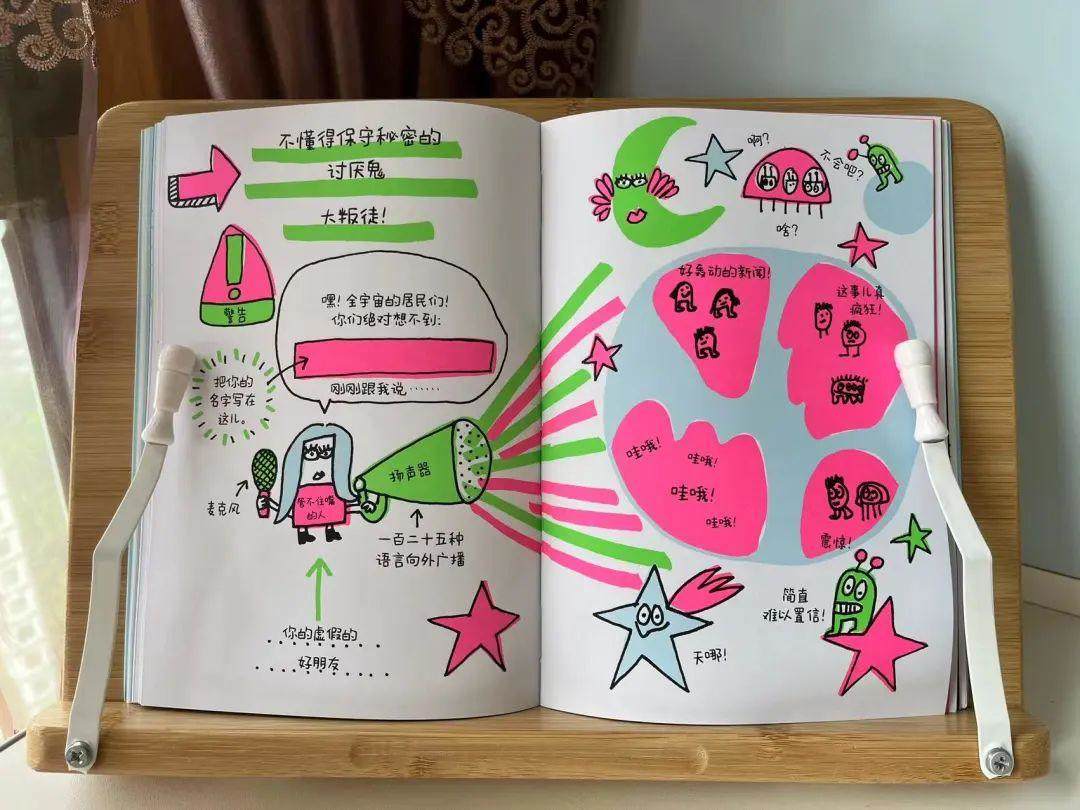 不懂得保守秘密的
讨厌鬼
大叛徒！
警告
嘿！全宇宙的居民们！
你们绝对想不到：
刚刚跟我说……
把你的
名字写在
这儿。
麦克风
管不住嘴
的人
扬声器
一百二十五种
语言向外广播
你的虚假的
好朋友
啊？
不会吧？
啥？
好轰动的新闻！
这事儿真
疯狂！
哇哦！
哇哦！
哇哦！
哇哦！
震惊！
简直
难以置信！
天哪！